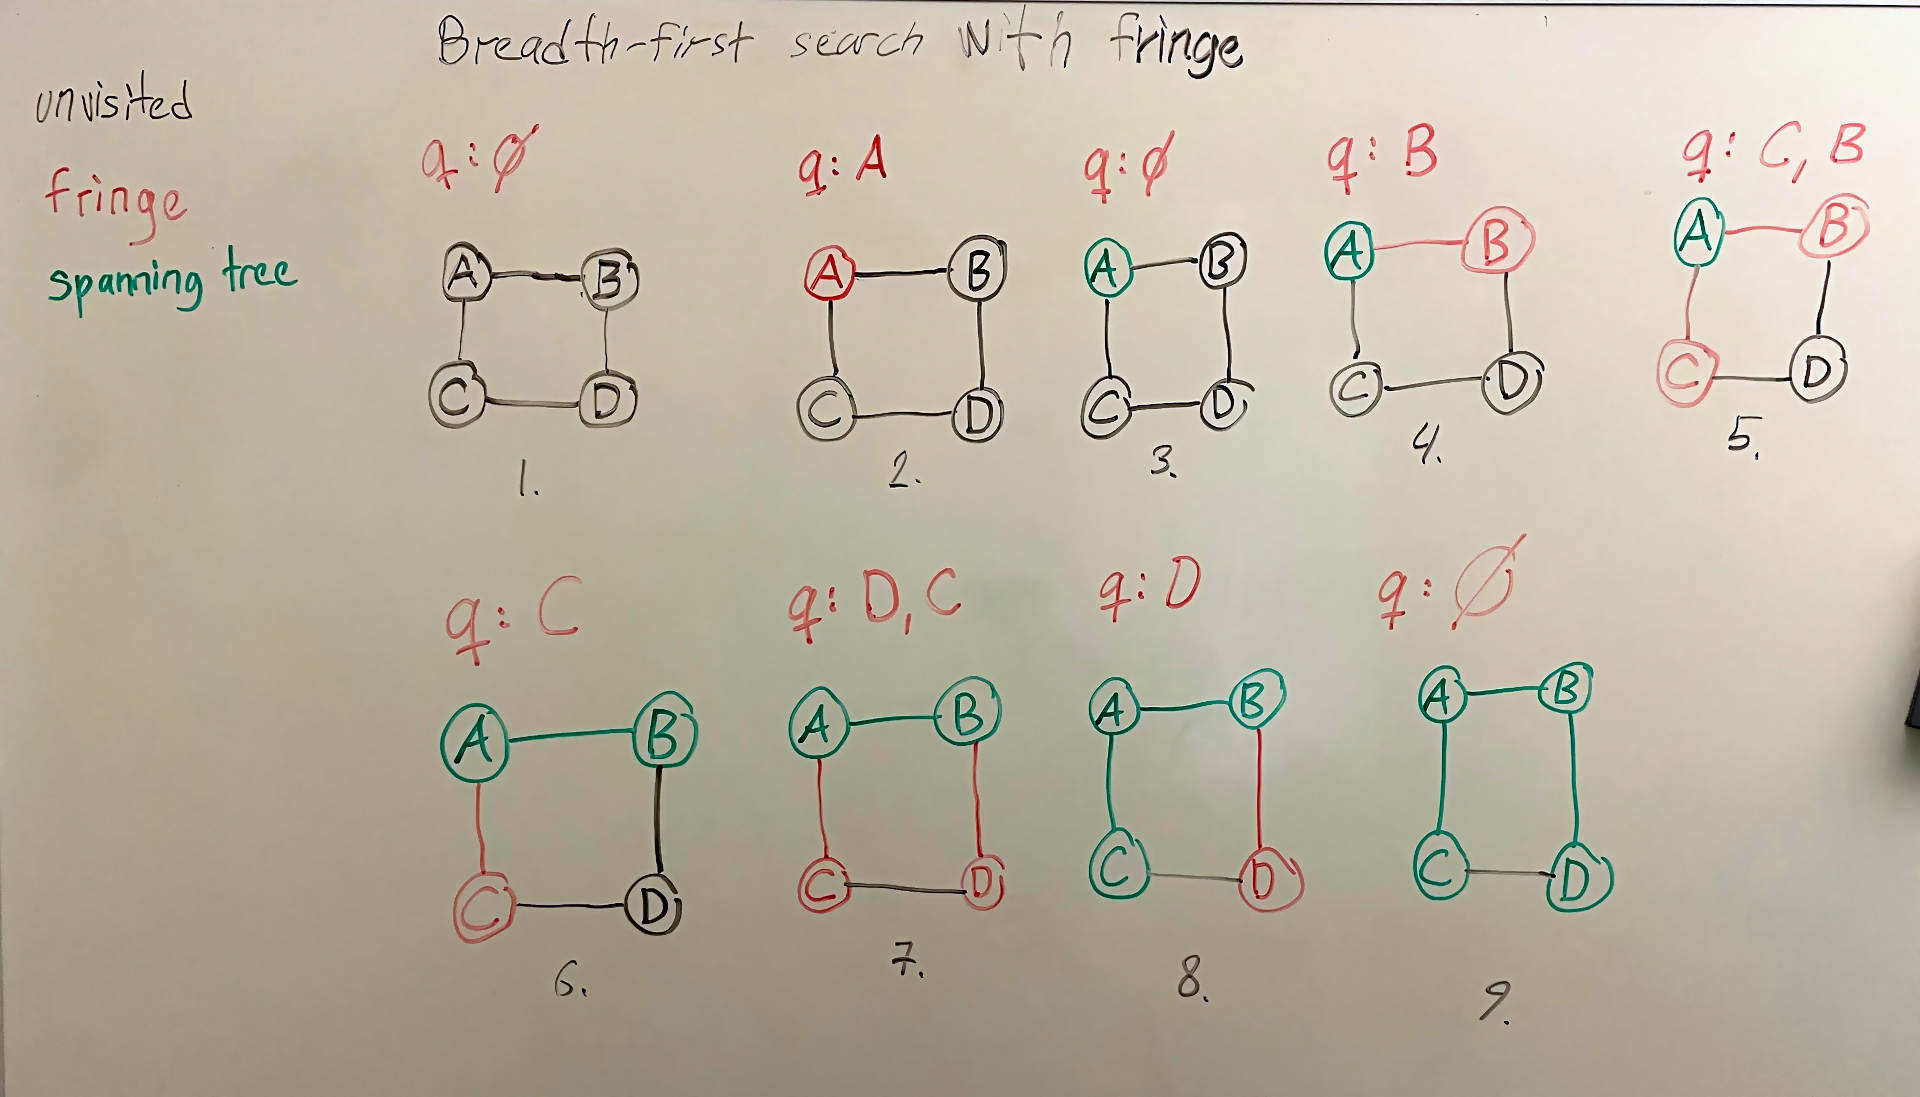 Breadth-first search with fringe
unvisited
fringe
spanning tree
q: ∅
A B
C D
1.
q: A
A B
C D
2.
q: ∅
A B
C D
3.
q: B
A B
C D
4.
q: C, B
A B
C D
5.
q: C
A B
C D
6.
q: D, C
A B
C D
7.
q: D
A B
C D
8.
q: ∅
A B
C D
9.